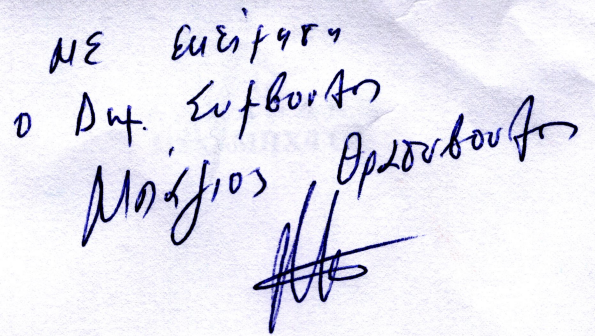 Με εκτίμηση
ο Δημ. Σύμβουλος
Μπάγιος Θρασύβουλος